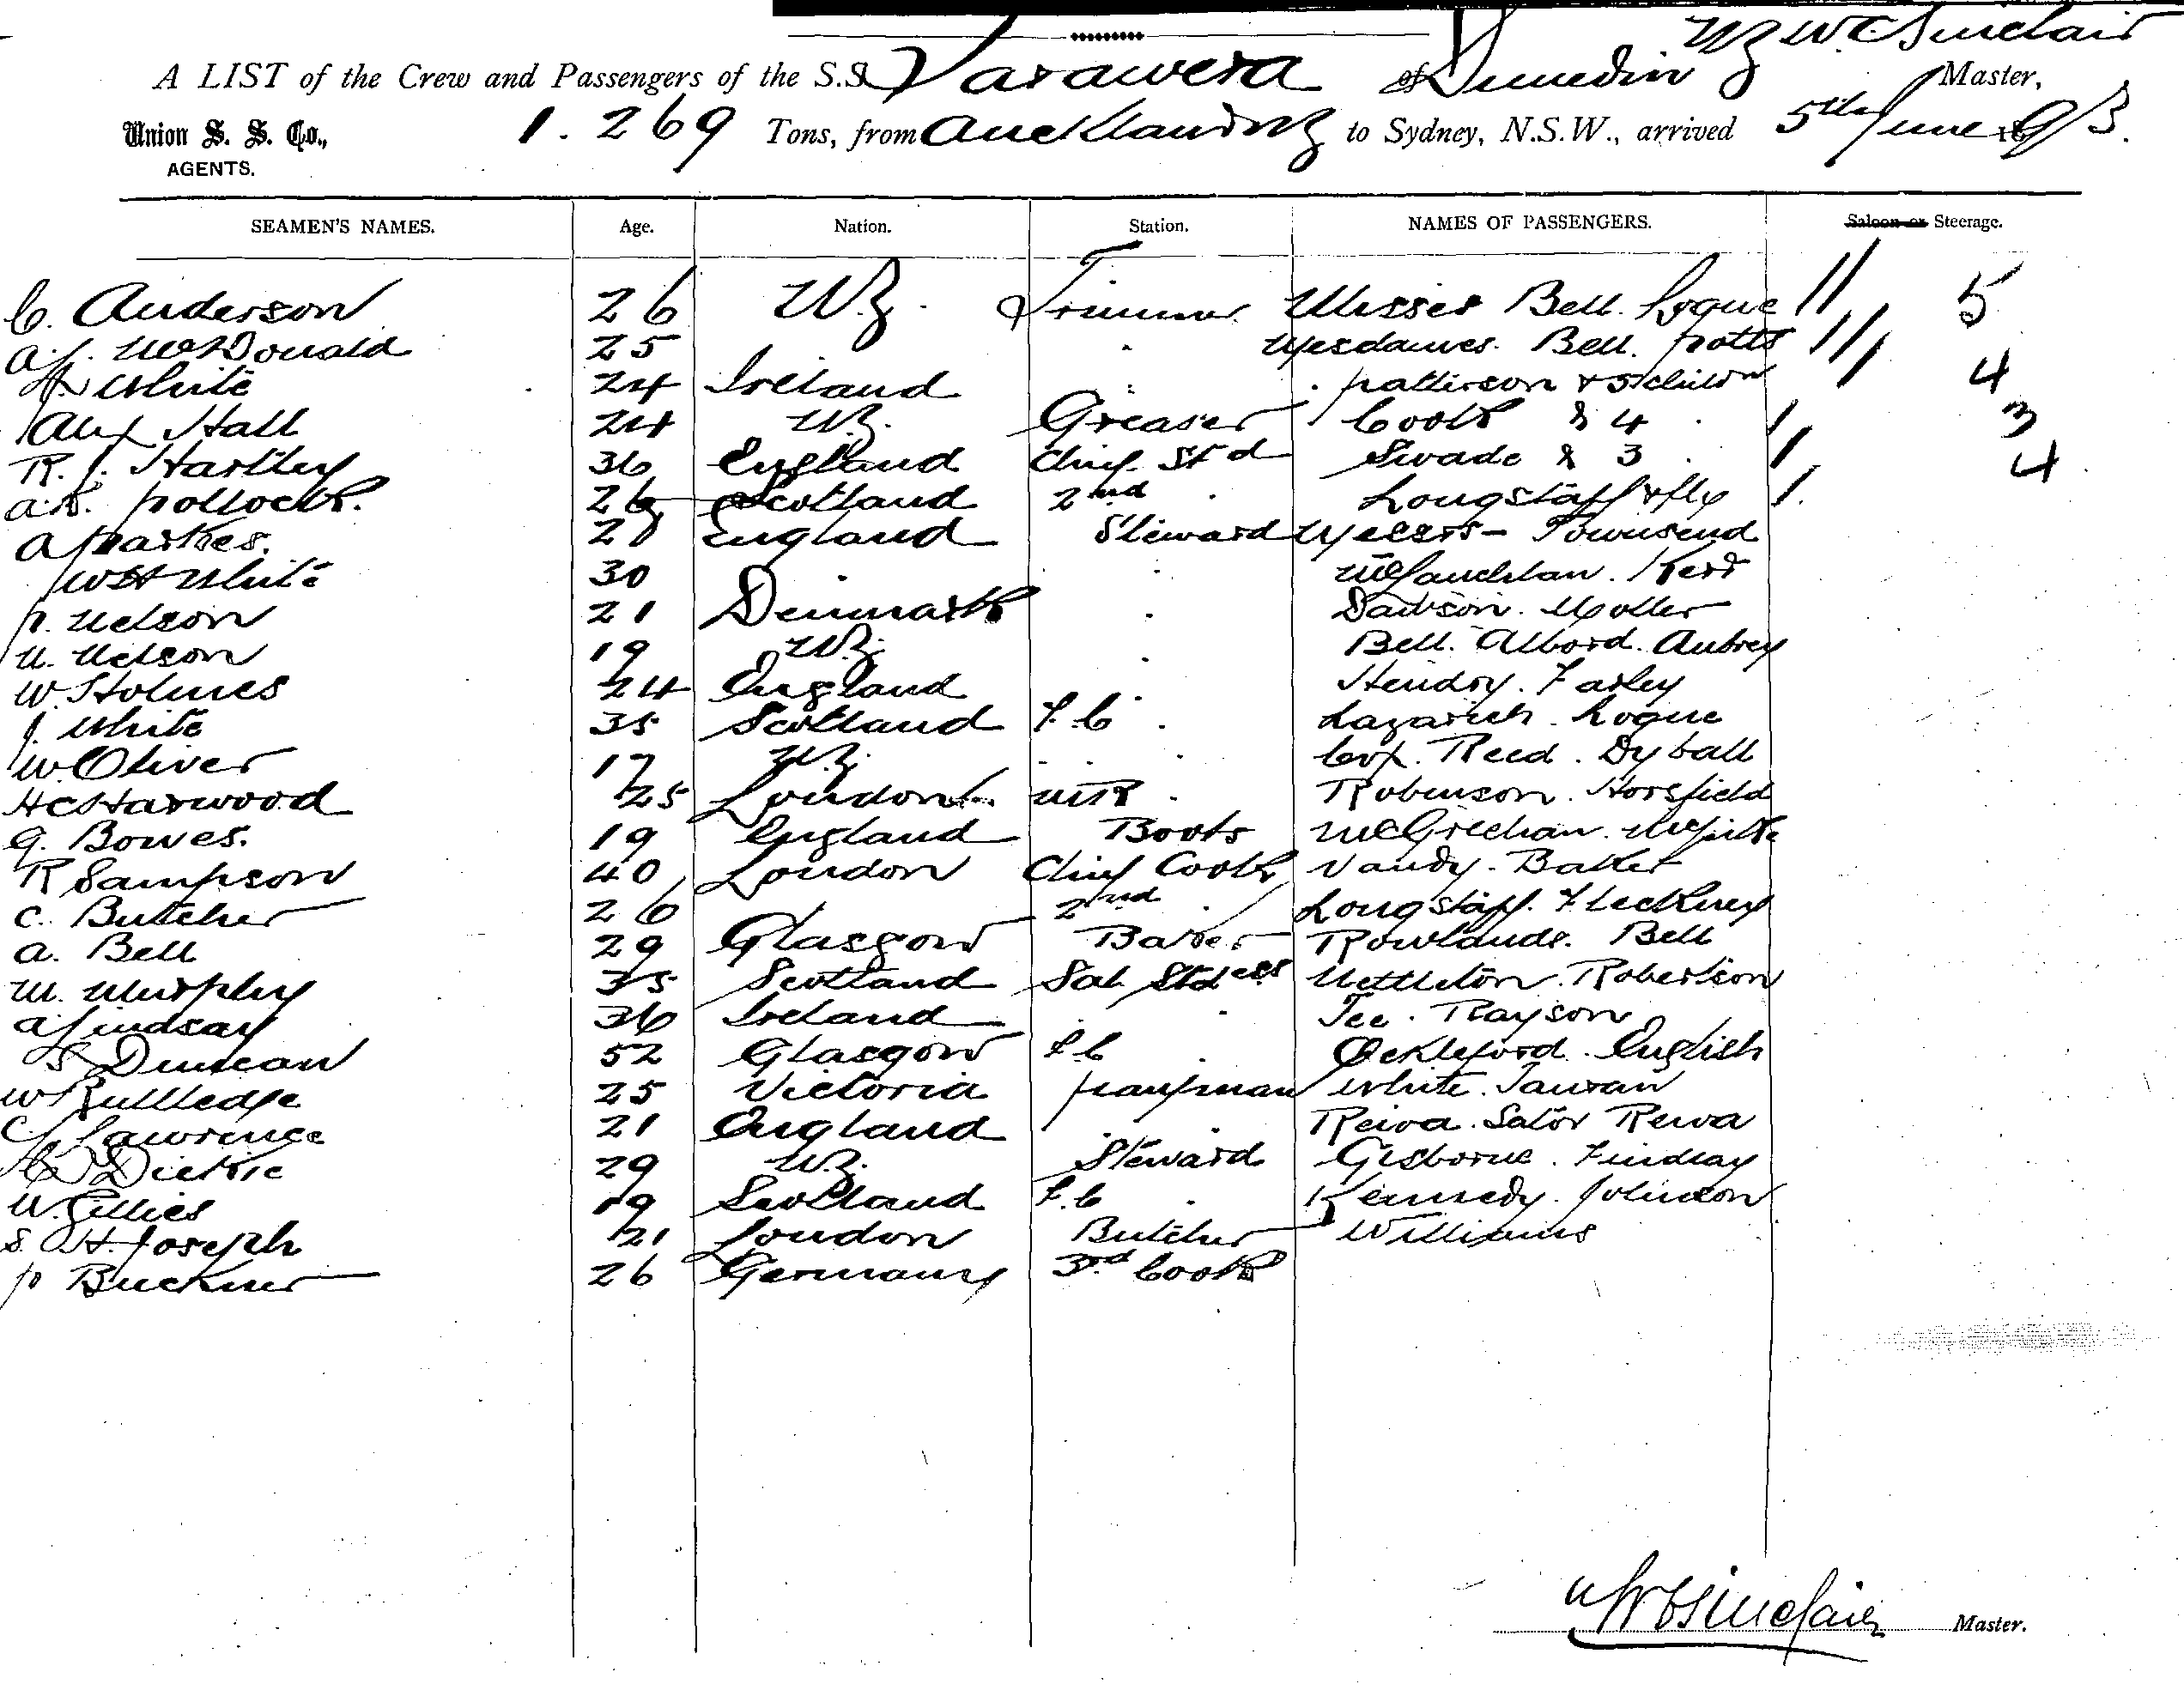 W C Sinclair
A LIST of the Crew and Passengers of the S.S. Tarawera of Dunedin N Z Master,
Union S. S. Co., 1.269 Tons, from Auckland NZ to Sydney, N.S.W., arrived 5th June 18 93.
AGENTS.
SEAMEN'S NAMES. Age. Nation. Station. NAMES OF PASSENGERS. Saloon or Steerage.
C. Anderson 26 N.Z. Trimmer Misses Bell. Logue 11 5
A.J. McDonald 25 " Mesdames. Bell. Potts 111
White 24 Ireland " Patterson & 5 childn 4
Alex Hall 24 N.Z. Greaser Cook & 4 1 3
R. J. Hartley 36 England Chief Std Swade & 3 1 4
A.R. Pollock. 26 Scotland 2nd " Longstaff & fly 1.
A Parkes. 28 England Steward Messrs - Townsend
W H White 30 " " McLauchlan. Kerr
P. Nelson 21 Denmark " Dawson. Moller
N. Nelson 19 N.Z. " Bell. Albord. Aubrey
W. Holmes 24 England " Hendry. Farley
J. White 35 Scotland F.C. Lazarich. Logue
W. Oliver 17 N.Z. " " Cox. Reed. Dyball
H C Harwood 25 London Robinson. Horsfield
G. Bowes. 19 England Boots McGrechan.
R Sampson 40 London Chief Cook Vandy. Baker
C. Butcher 26 " 2nd " Longstaff. Fleckney
A. Bell 29 Glasgow Baker Rowlands. Bell
M. Murphy 35 Scotland Sal. Stdess Nettleton. Robertson
A Lindsay 36 Ireland " Tee. Rayson
S Duncan 52 Glasgow F.C. " Ockleford. English
W Rutledge 25 Victoria Pantryman White. Tauran
C J Lawrence 21 England " " Reiva. Sator Rewa
Dickie 29 N.Z. Steward Gisborne. Findlay
W. Gillies 19 Scotland F.C. " Kennedy. Johnson
S. H. Joseph 21 London Butcher Williams
P Buckner 26 Germany 3rd Cook
W C Sinclair Master.